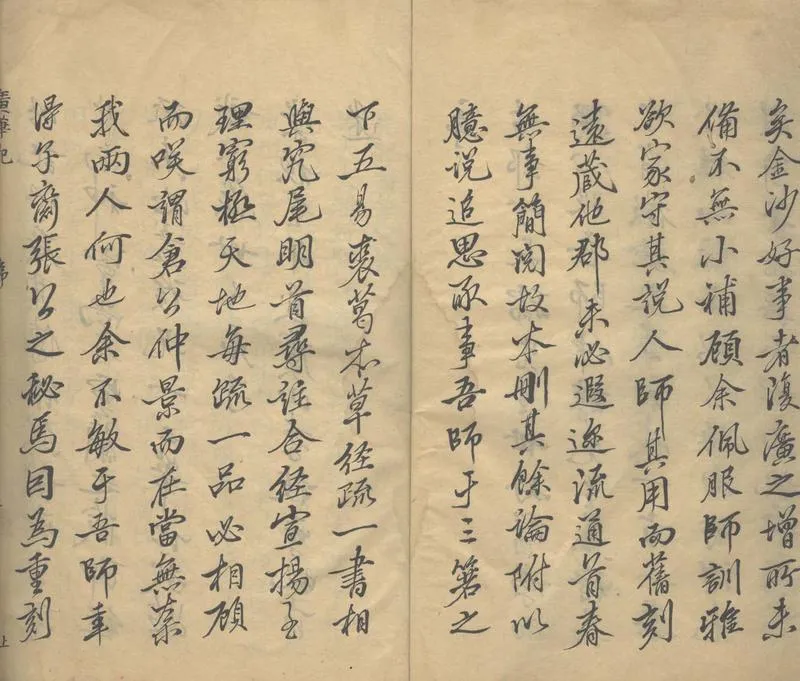 矣金沙好事者復廣之增所未
備不無小補顧余佩服師訓雅
欲家守其說人師其用而舊刻
遠藏他郡未必遐邇流通首春
無事簡閱故本刪其餘論附以
臆說追思承事吾師于三箸之
下五易裘葛本草經疏一書相
與究尾明首尋註合經宣揚至
理窮極天地每疏一品必相顧
而咲謂倉公仲景而在當無柰
我兩人何也余不敏于吾師幸
得子裔張公之秘焉因為重刻
廣筆記
序
上